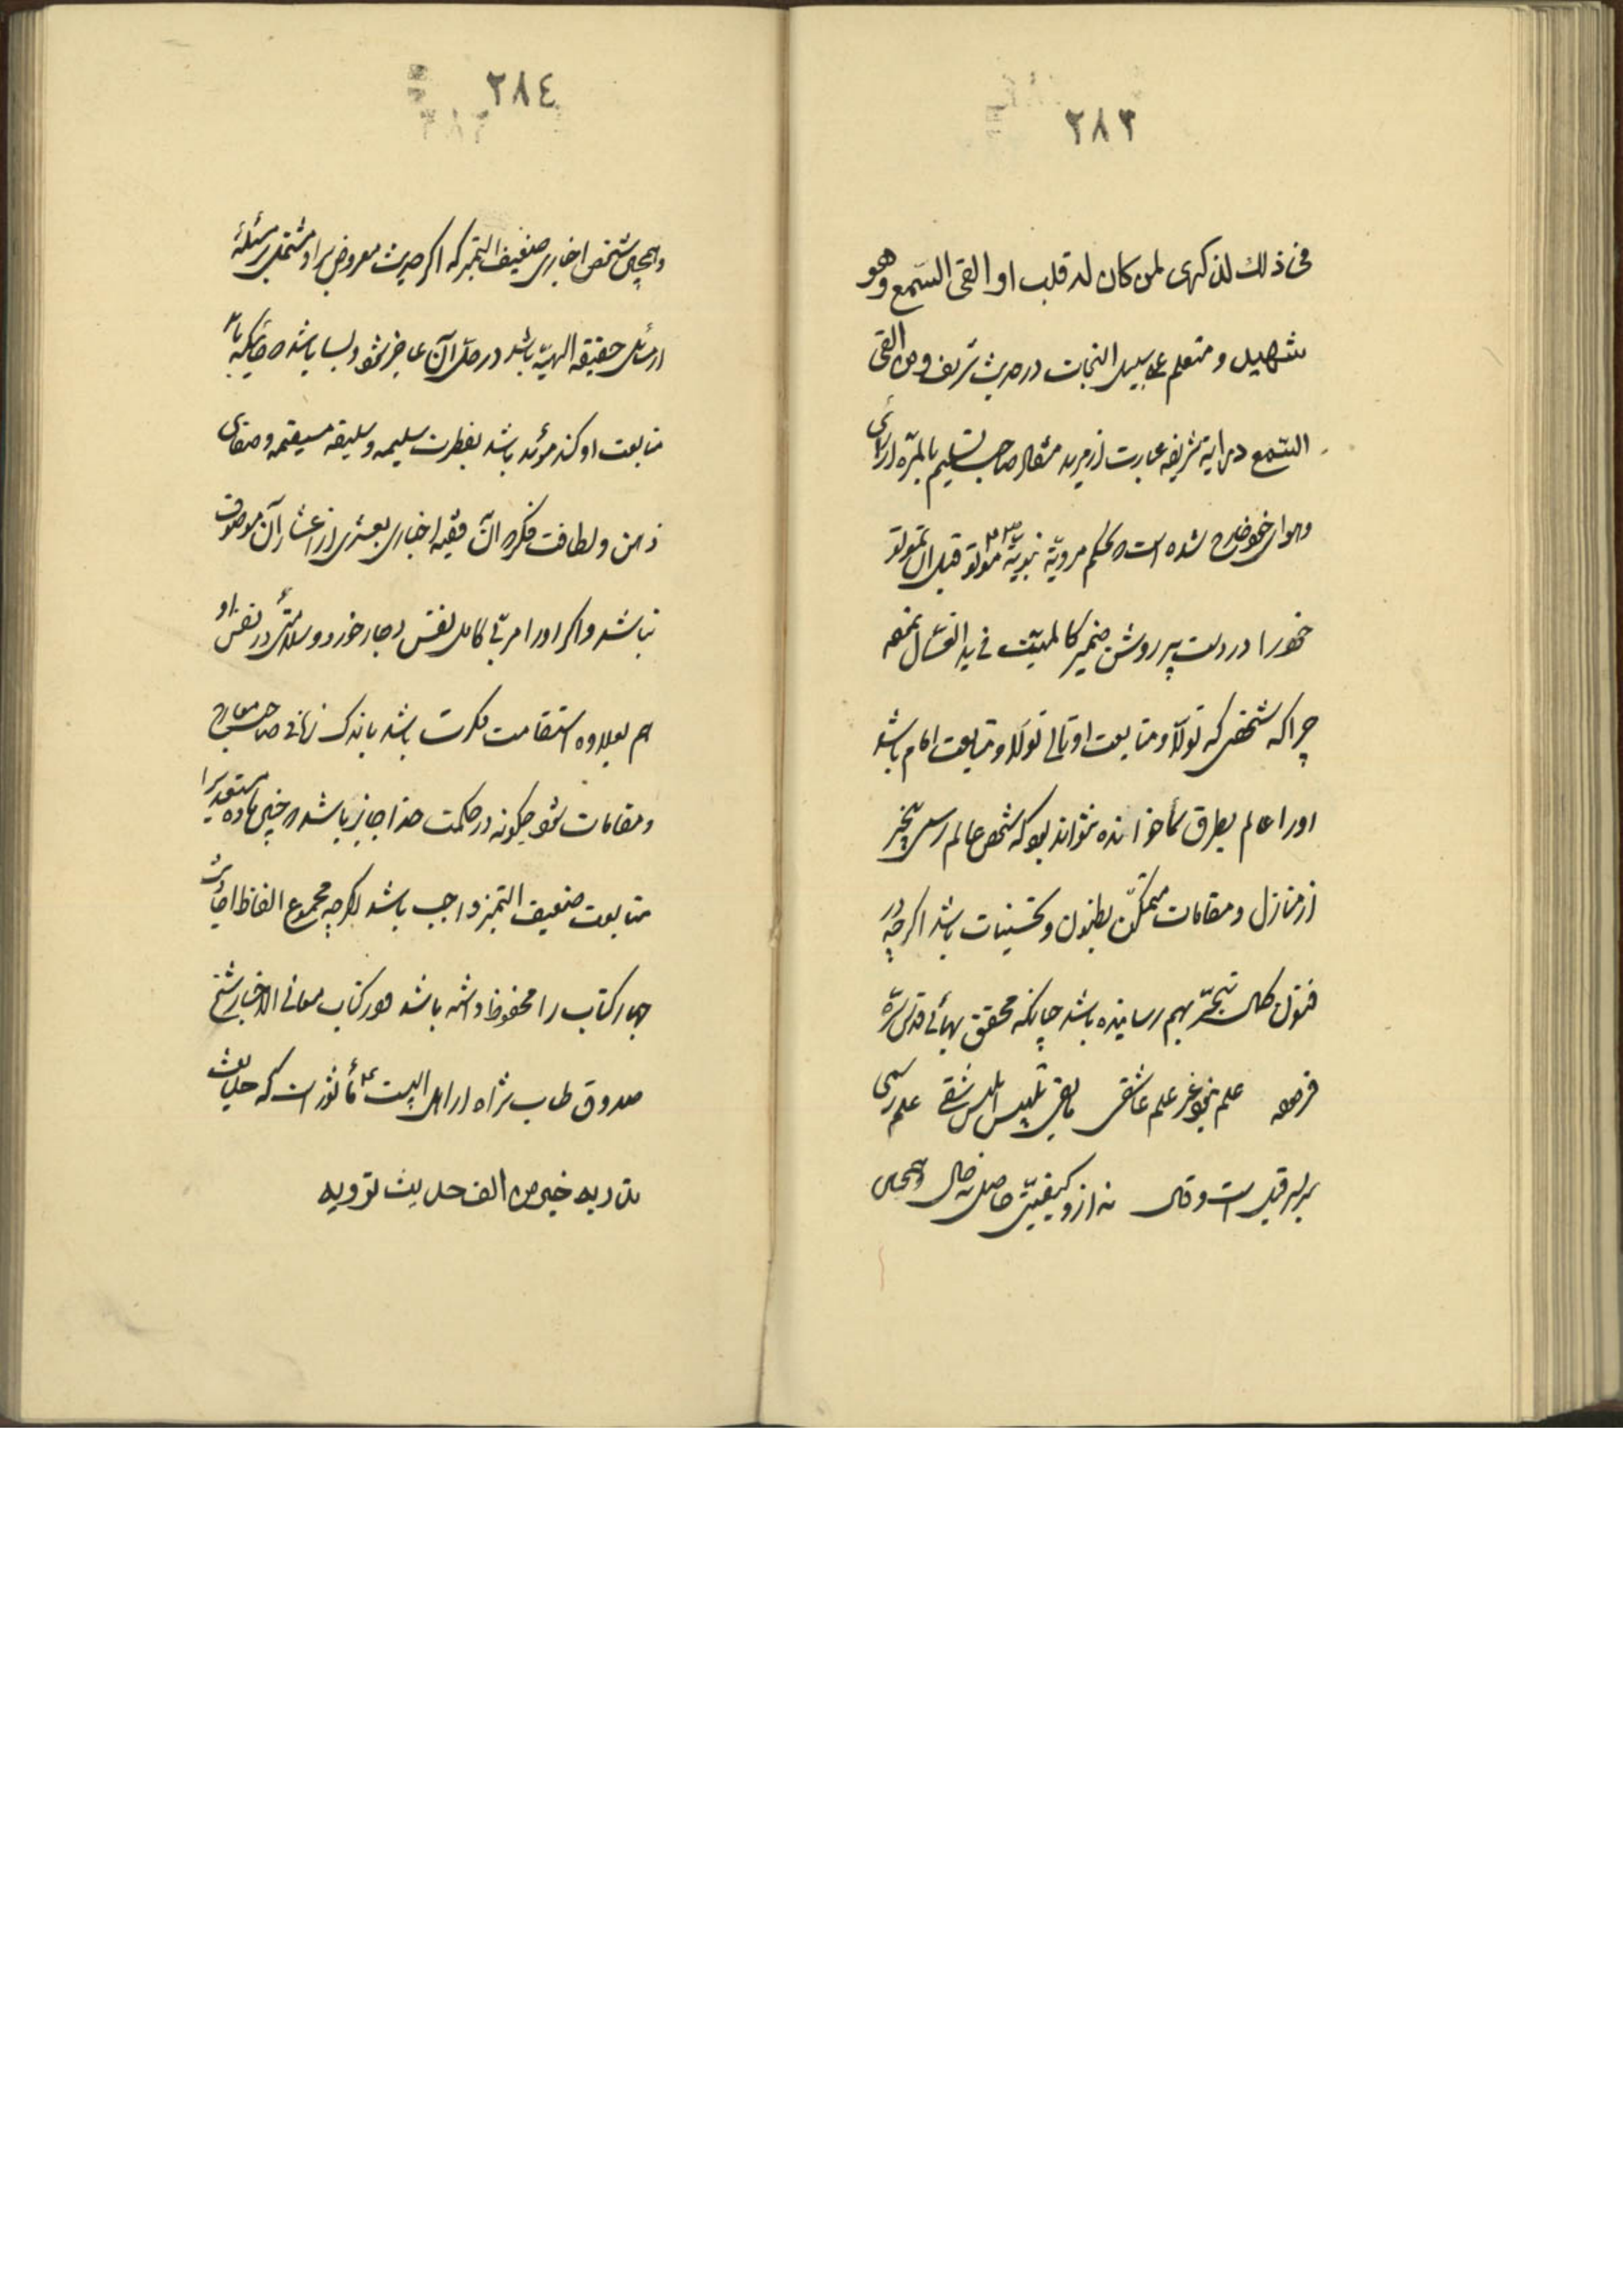 ٢٨٣
فی ذلك لذکری لمن کان له قلب او القی السّمع وهو
شهید و متعلم علی سبیل النجات در حدیث شریف و من القی
السّمع در ایه شریفه عبارت از مرید مثال صاحب تسلیم بالمرّه از رأی
وهوای خود خارج شده است بحکم مرویّة نبویّة موتوا قبل ان تموتوا
خود را در دست پیر روشن ضمیر کالمیّت فی ید الغسّال نهد
چرا که شخصی که تولّا و متابعت او تالی تولّا و متابعت امام باشد
او را عالم بطرق سما خوانده نتواند بود که شخص عالم رسمی بیخبر
از منازل و مقامات متمکّن بظنون و تخمینات باشد اگرچه در
فنون کمال تبحّر بهم رسانیده باشد چنانکه محقق بهائی قدّس سرّه
فرموده علم نبود غیر علم عاشقی مابقی تلبیس ابلیس شقی علم رسمی
سر بسر قیل است و قال نه از و کیفیّتی حاصل نه حال و همچنین
٢٨٤
و همچنین شخص اخباری ضعیف التمیز که اگر حدیث معروض بر او مشتمل بر مسئلهٔ
از مسائل حقیقه الهیّه باشد در حلّ آن عاجز شود و بسا باشد که
متابعت او کند مؤید باشد بفطرت سلیمه و سلیقه مستقیمه و صفای
ذهن و لطافت فکر که آن فقیه اخباری بعشری از اعشار آن موصوف
نباشد و اگر او را مربّی کامل نفس دچار خورد و سلامتی در نفس او
هم بعلاوه استقامت فکرت باشد باندک زمانی صاحب معارج
و مقامات شود چگونه در حکمت خدا جایز باشد که چنین ماده مستعدی را
متابعت ضعیف التمیز واجب باشد اگرچه مجموع الفاظ احادیث
چهار کتاب را محفوظ داشته باشد و در کتاب معانی الاخبار شیخ
صدوق طاب ثراه از اهل البیت ع مأثور است که حدیث
تدریه خیر من الف حدیث ترویه